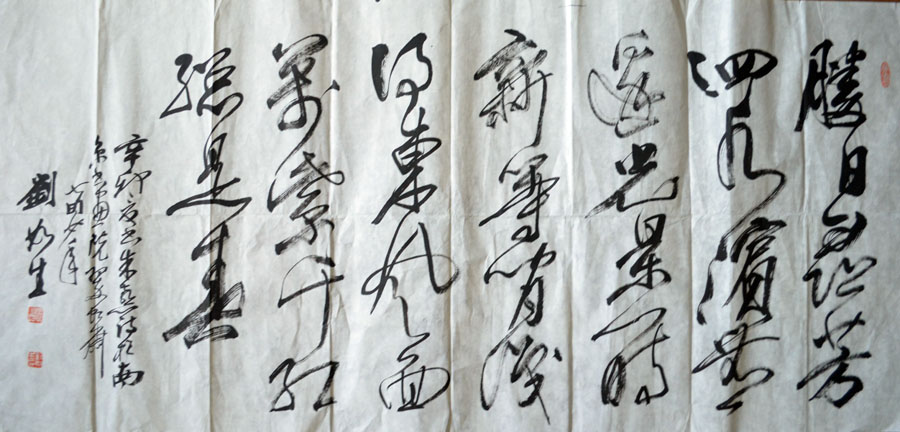 勝日尋芳
泗水濱無
邊光景一時
新等閒識
得東風面
萬紫千紅
總是春
辛卯書朱熹詩於南
京
劉生